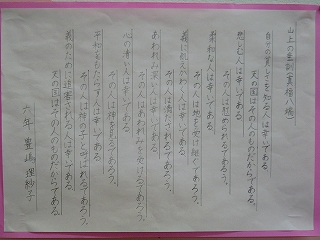 山上の垂訓（真福八端）
自分の貧しさを知る人は幸いである。
天の国はその人のものだからである。
悲しむ人は幸いである。
その人は慰められるであろう。
柔和な人は幸いである。
その人は地を受け継ぐであろう。
義に飢えかわく人は幸いである。
その人は満たされるであろう。
あわれみ深い人は幸いである。
その人はあわれみを受けるであろう。
心の清い人は幸いである。
その人は神を見るであろう。
平和をもたらす人は幸いである。
その人は神の子と呼ばれるであろう。
義のために迫害される人は幸いである。
天の国はその人のものだからである。
六年 豊嶋 理紗子